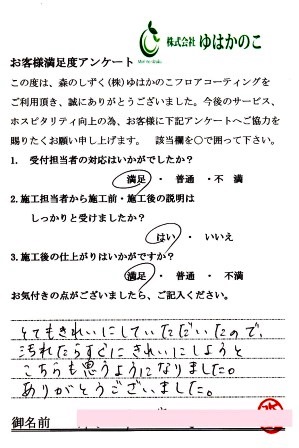 株式会社 ゆはかのこ
お客様満足度アンケート
この度は、森のしずく(株)ゆはかのこフロアコーティングを
ご利用頂き、誠にありがとうございました。今後のサービス、
ホスピタリティ向上の為、お客様に下記アンケートへご協力を
賜りたくお願い申し上げます。 該当欄を○で囲って下さい。
1. 受付担当者の対応はいかがでしたか?
満足 ・ 普通 ・ 不 満
2. 施工担当者から施工前・施工後の説明は
しっかりと受けましたか?
はい ・ いいえ
3. 施工後の仕上がりはいかがですか?
満足 ・ 普通 ・ 不満
お気付きの点がございましたら、ご記入ください。
とてもきれいにしていただいたので、
汚れたらすぐにきれいにしようと
こちらも思うようになりました。
ありがとうございました。
御名前